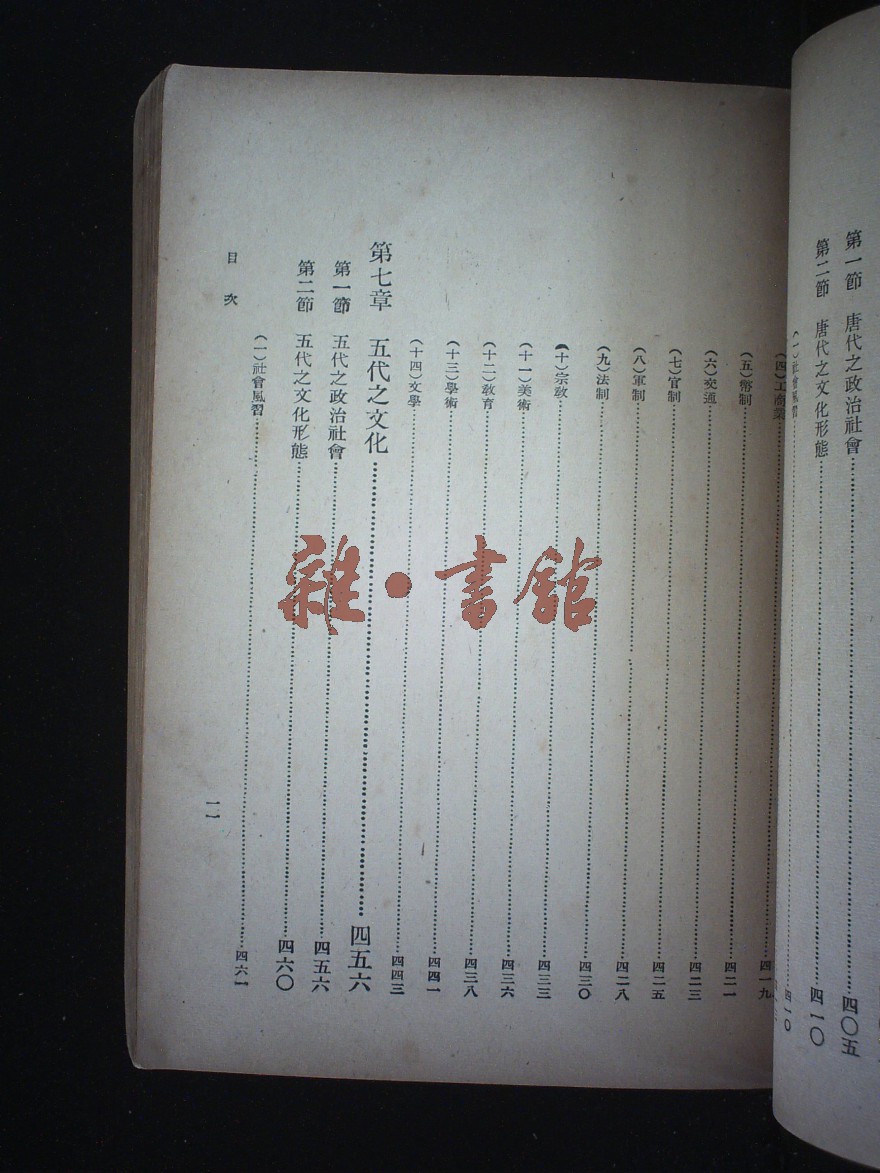 第一節　唐代之政治社會……四〇五
第二節　唐代之文化形態……四一〇
(一)社會風習……四一〇
(四)工商業……四一九
(五)幣制……四二一
(六)交通……四二三
(七)官制……四二五
(八)軍制……四二八
(九)法制……四三〇
(十)宗敎……四三三
(十一)美術……四三六
(十二)敎育……四三八
(十三)學術……四四一
(十四)文學……四四三
第七章　五代之文化……四五六
第一節　五代之政治社會……四五六
第二節　五代之文化形態……四六〇
(一)社會風習……四六一
目次
一一
雜·書館